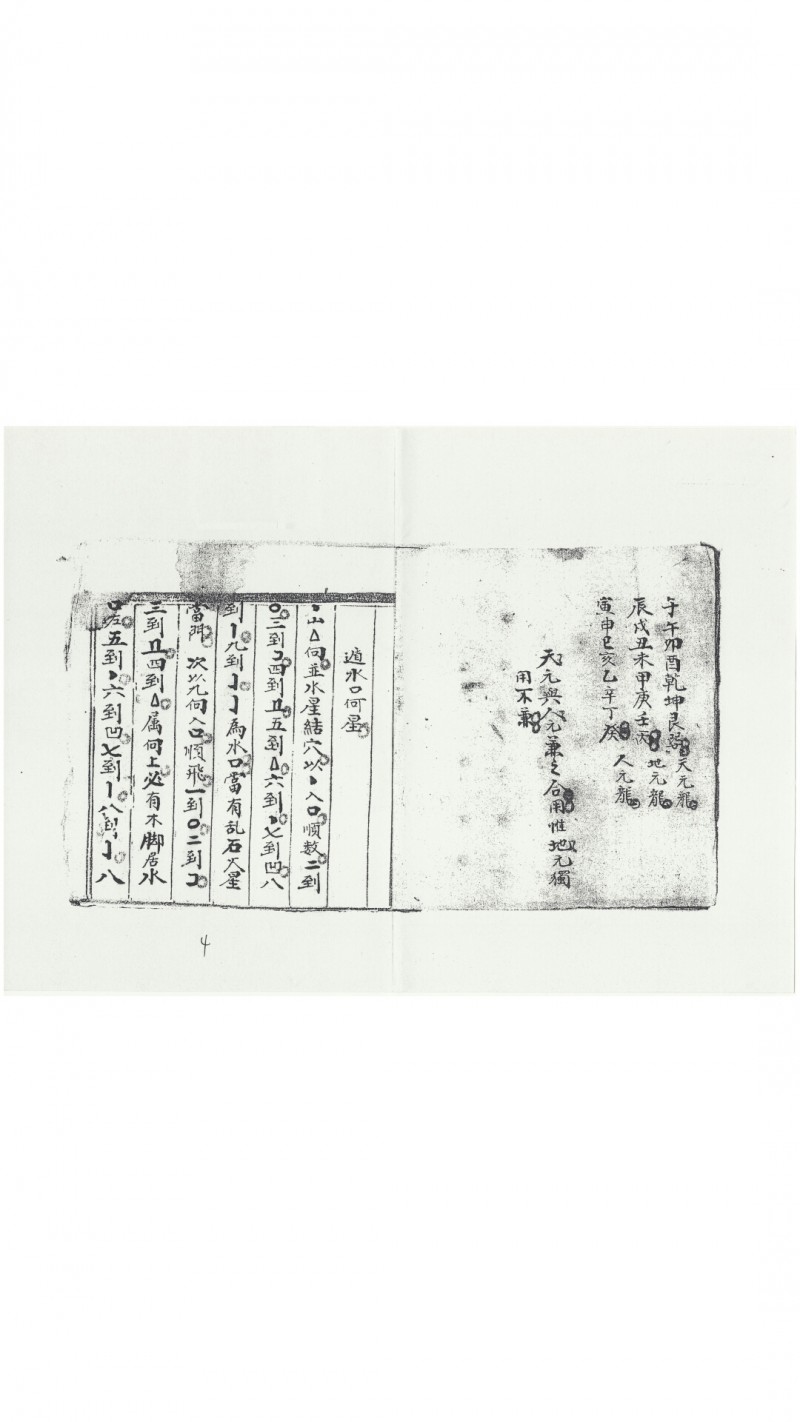 子午卯酉乾坤艮巽 天元龍
辰戌丑未甲庚壬丙 地元龍
寅申巳亥乙辛丁癸 人元龍
天元與人元兼之合用惟地元獨
用不兼
遁水口何星
丶山△向並水星結穴以丶入口順数二到
〇三到コ四到彑五到△六到丶七到凹八
到丨九到亅亅為水口當有乱石火星
當門 次以九向入口順飛一到〇二到コ
三到彑四到△属向上必有木脚居水
口左五到丶六到凹七到丨八到亅八
4